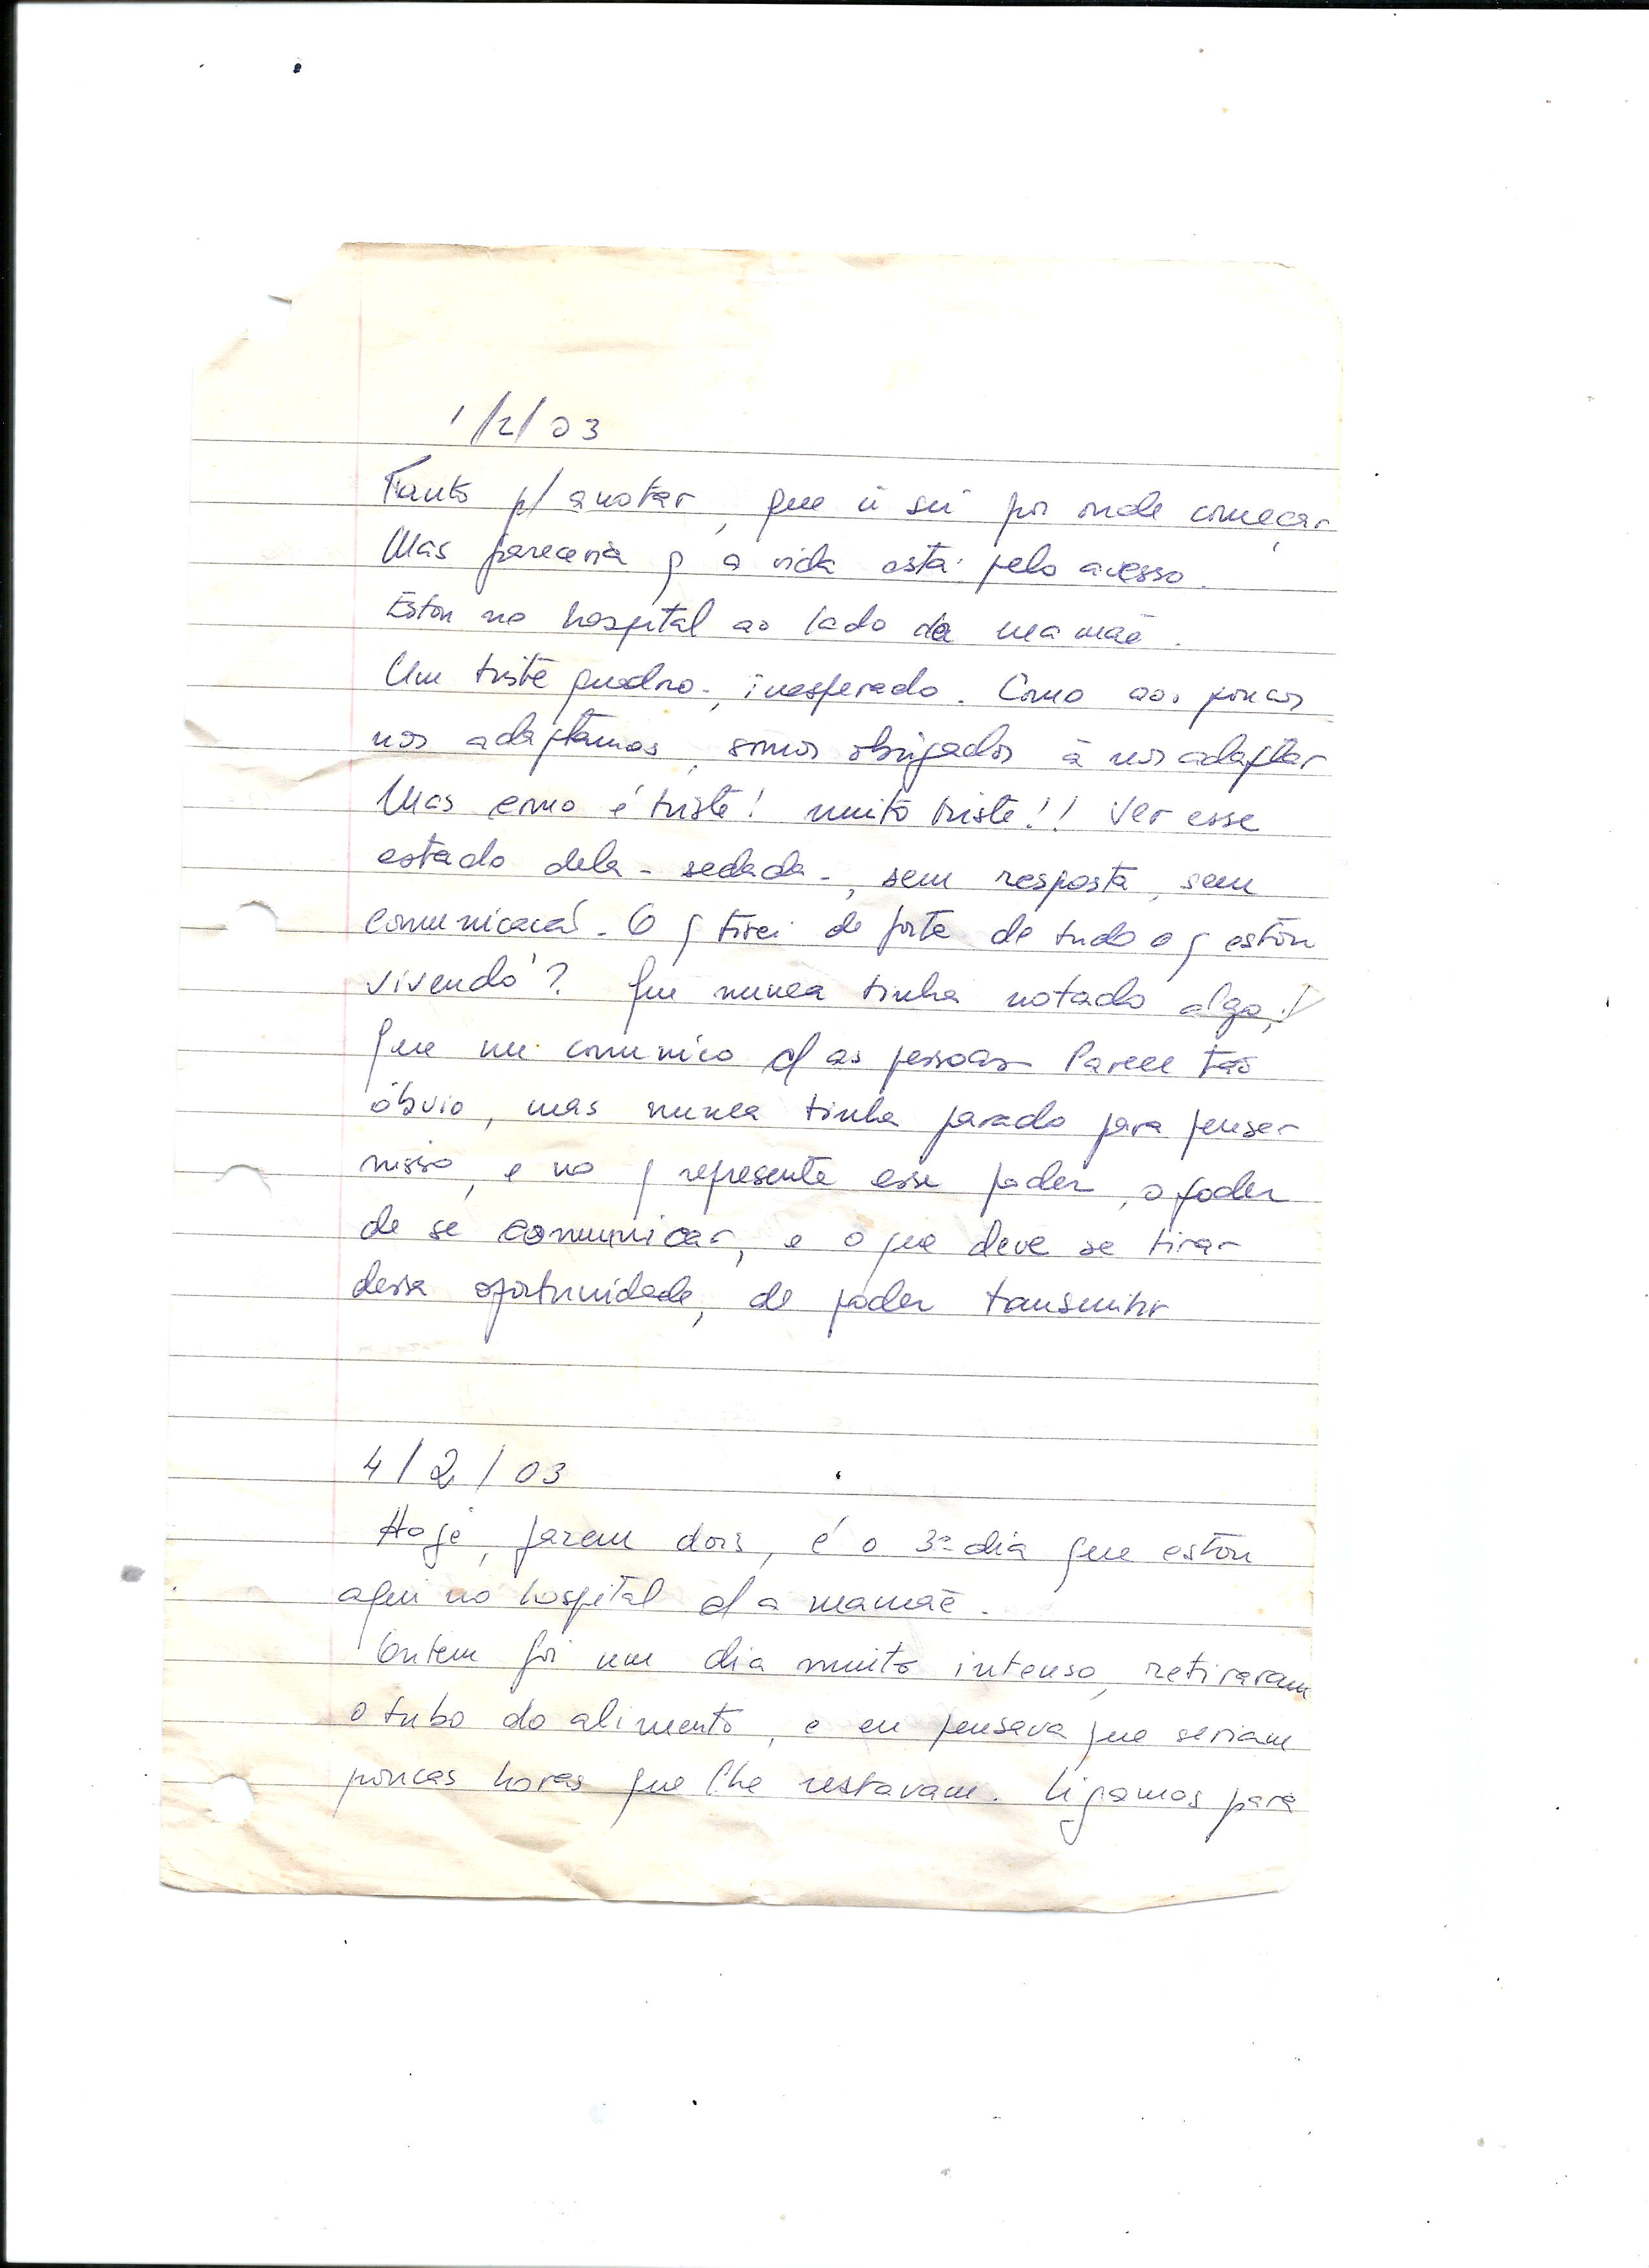 1/2/03
Tanto p/ anotar, que ñ sei por onde começar
Mas pareceria q a vida está pelo avesso.
Estou no hospital ao lado da mamãe.
Um triste quadro, inesperado. Como aos poucos
nos adaptamos, somos obrigados à nos adaptar
Mas como é triste! muito triste!! Ver esse
estado dela - sedada -, sem resposta, sem
comunicação. O q tirei de forte de tudo o q estou
vivendo? Que nunca tinha notado algo!
Que me comunico c/ as pessoas Parece tão
óbvio, mas nunca tinha parado para pensar
nisso, e no q representa esse poder, o poder
de se comunicar, e o que deve se tirar
dessa oportunidade, de poder transmitir
4/2/03
Hoje, fazem dois, é o 3º dia que estou
aqui no hospital c/ a mamãe.
Ontem foi um dia muito intenso, retiraram
o tubo do alimento, e eu pensava que seriam
poucas horas que lhe restavam. Ligamos para